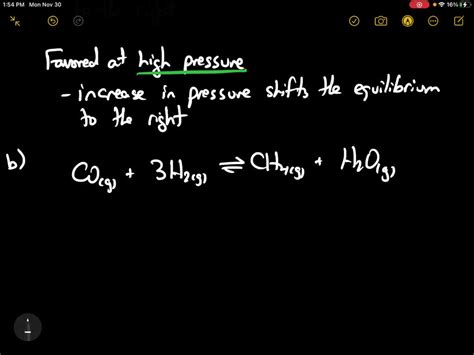 1:54 PM Mon Nov 30
16%
Favored at high pressure
- increase in pressure shifts the equilibrium
to the right
b) CO(g) + 3H2(g) ⇌ CH4(g) + H2O(g)